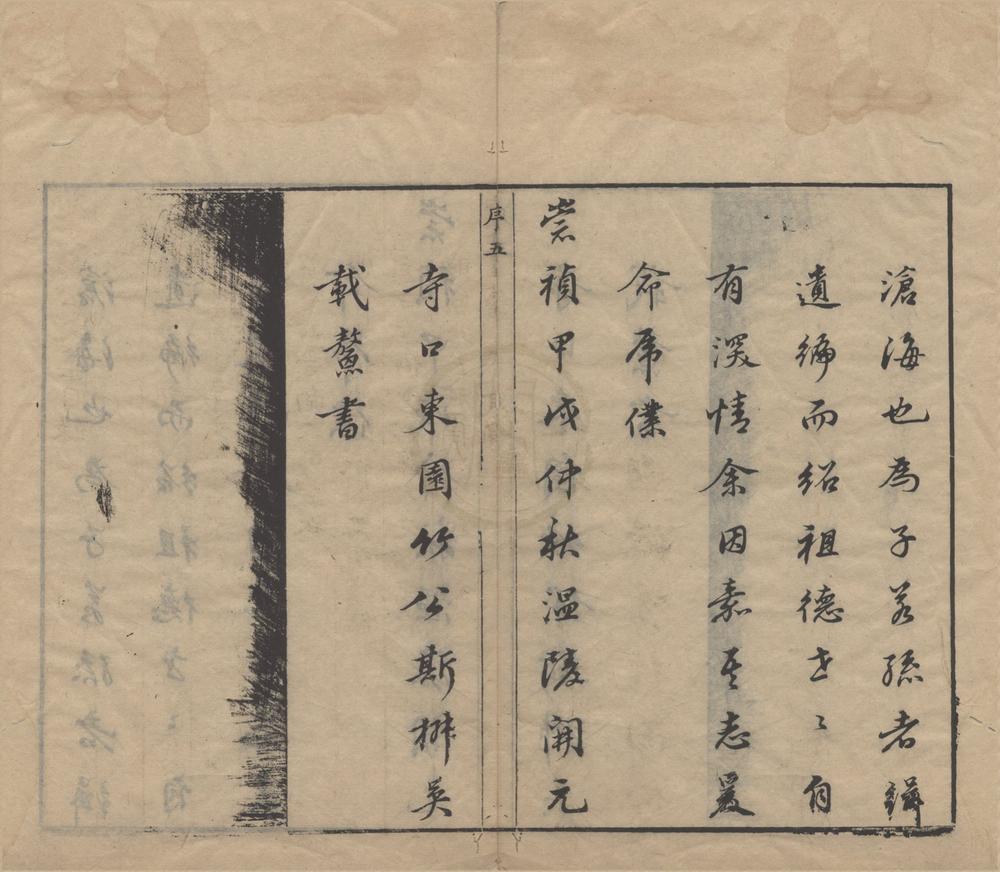 滄海也爲子若孫者
遺編而紹祖德世〻自
有深情余因嘉其志爰
命僕
崇禎甲戌仲秋溫陵開元
序五
寺口東園竹公斯吳
載鰲書